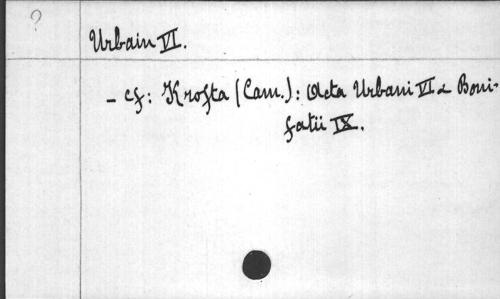 ?
Urbain VI.
- cf: Krofta (Cam.): Acta Urbani VI & Boni-
fatii IX.